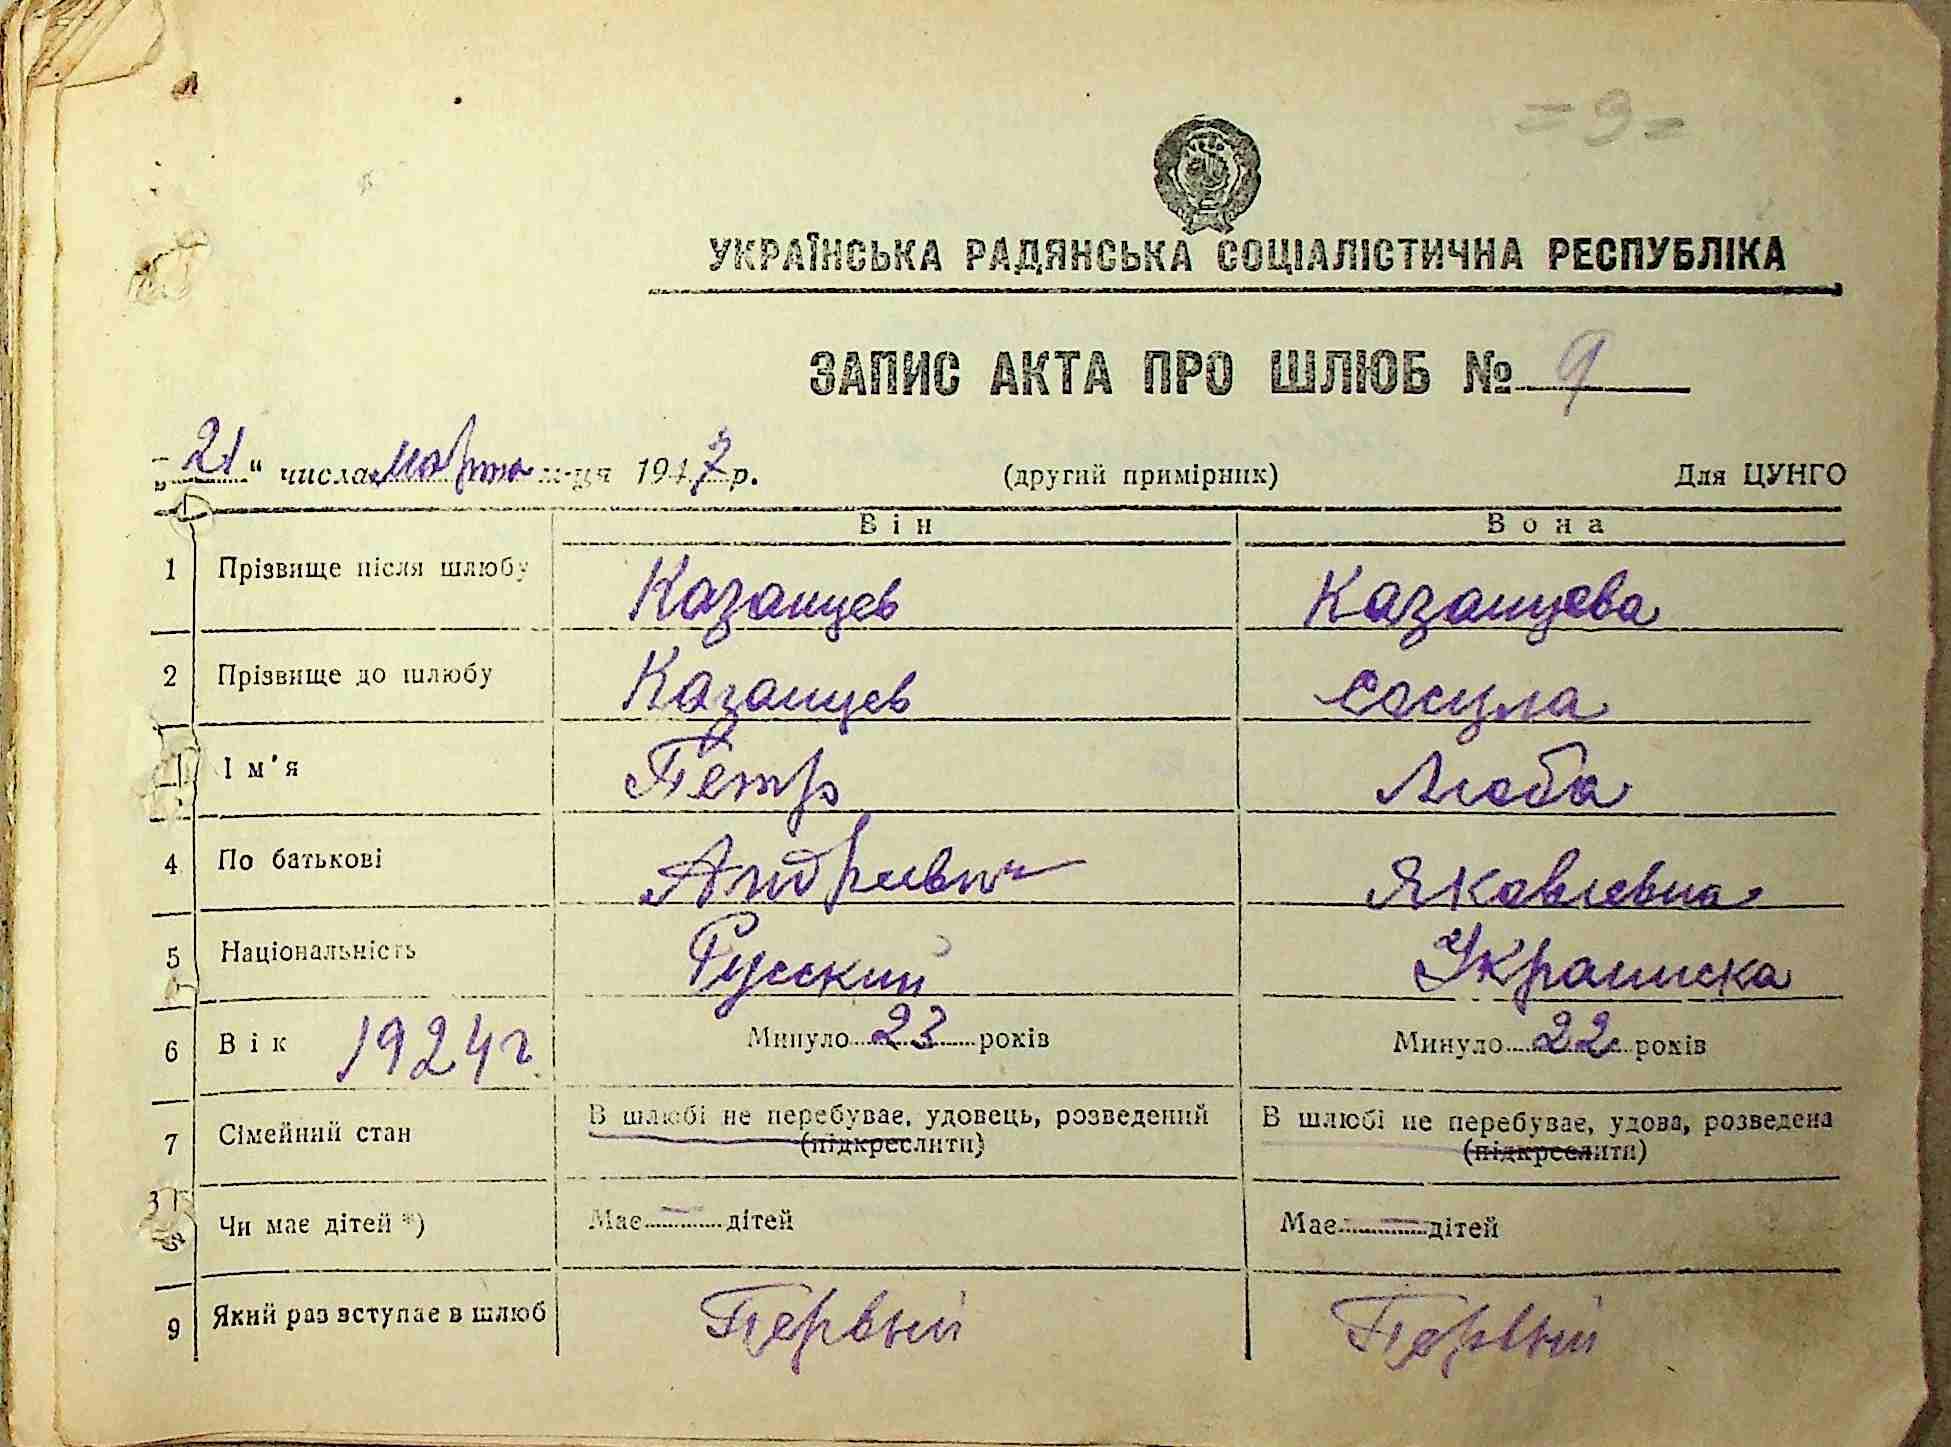 = 9 =
УКРАЇНСЬКА РАДЯНСЬКА СОЦІАЛІСТИЧНА РЕСПУБЛІКА
ЗАПИС АКТА ПРО ШЛЮБ № 9
„21“ числа марта м-ця 1947 р. (другий примірник) Для ЦУНГО
Він Вона
1 Прізвище після шлюбу Казанцев Казанцева
2 Прізвище до шлюбу Казанцев Сосула
Ім'я Петр Люба
4 По батькові Андреевич Яковлевна
5 Національність Русский Украинска
6 Вік 1924 г. Минуло 23 років Минуло 22 років
7 Сімейний стан В шлюбі не перебуває, удовець, розведений В шлюбі не перебуває, удова, розведена
(підкреслити) (підкреслити)
Чи має дітей *) Має — дітей Має — дітей
9 Який раз вступає в шлюб Первый Первый